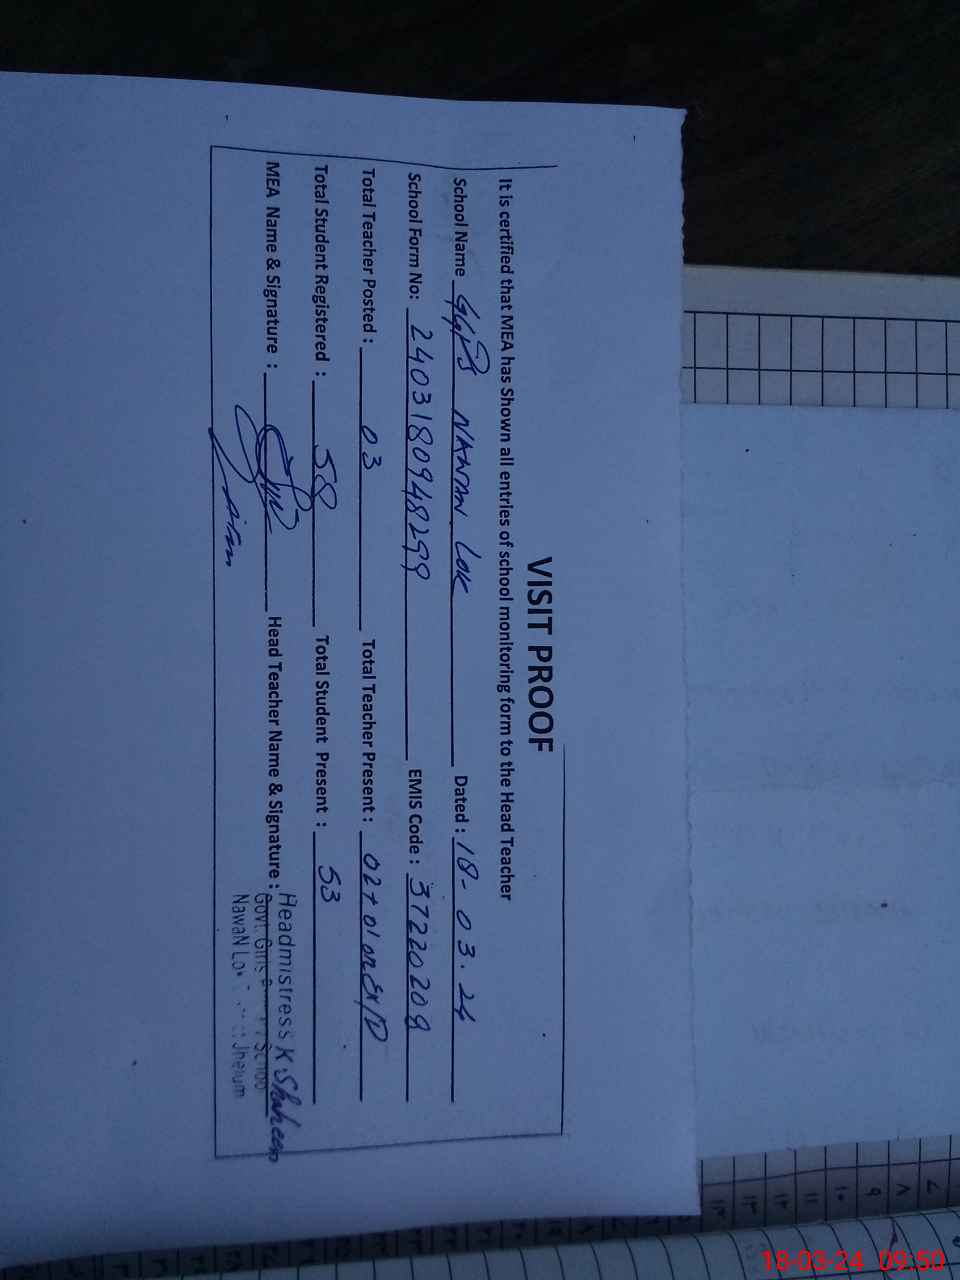 VISIT PROOF
It is certified that MEA has Shown all entries of school monitoring form to the Head Teacher
School Name GGPS NAWAN LOK Dated : 18-03.24
School Form No: 2403180948299 EMIS Code : 37220209
Total Teacher Posted : 03 Total Teacher Present : 02+01 on Ex/D
Total Student Registered : 58 Total Student Present : 53
MEA Name & Signature : Head Teacher Name & Signature : Headmistress K Shaheen
Govt. Girls School
Nawan Lok Jhelum
18-03-24 09:50